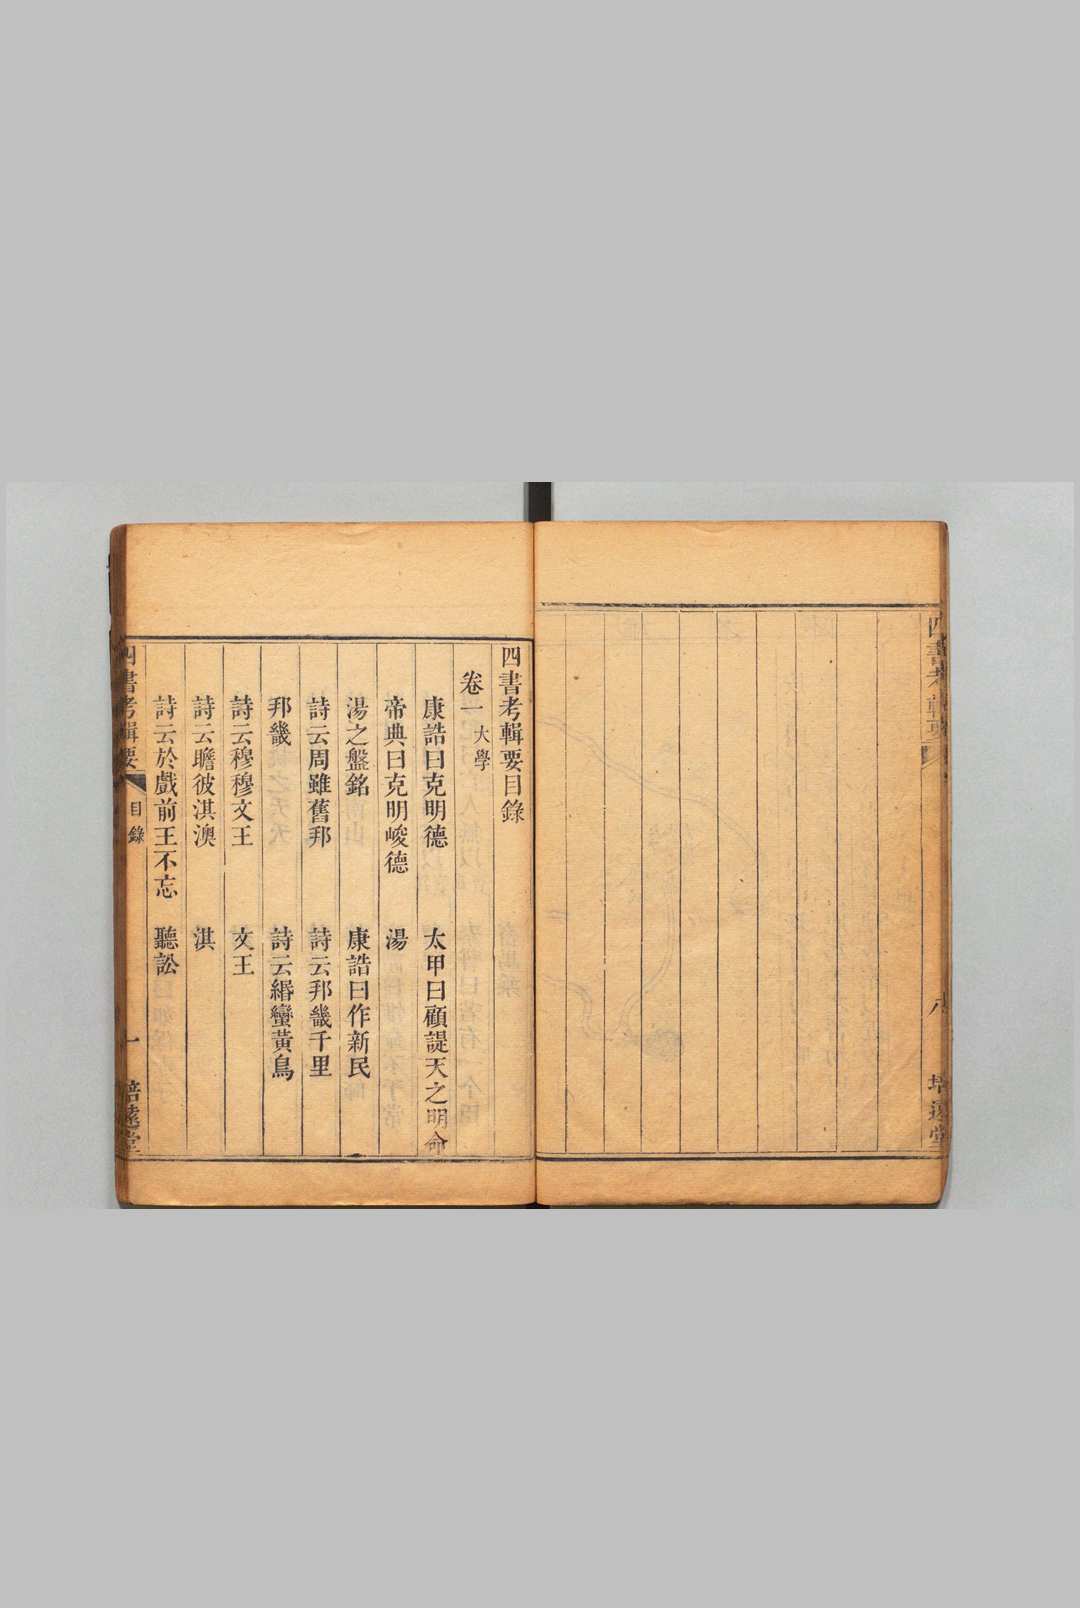 四書考輯要
八
培遠堂
四書考輯要目錄
卷一 大學
康誥曰克明德 太甲曰顧諟天之明命
帝典曰克明峻德 湯
湯之盤銘 康誥曰作新民
詩云周雖舊邦 詩云邦畿千里
邦畿 詩云緡蠻黃鳥
詩云穆穆文王 文王
詩云瞻彼淇澳 淇
詩云於戲前王不忘 聽訟
四書考輯要 目錄 一 培遠堂